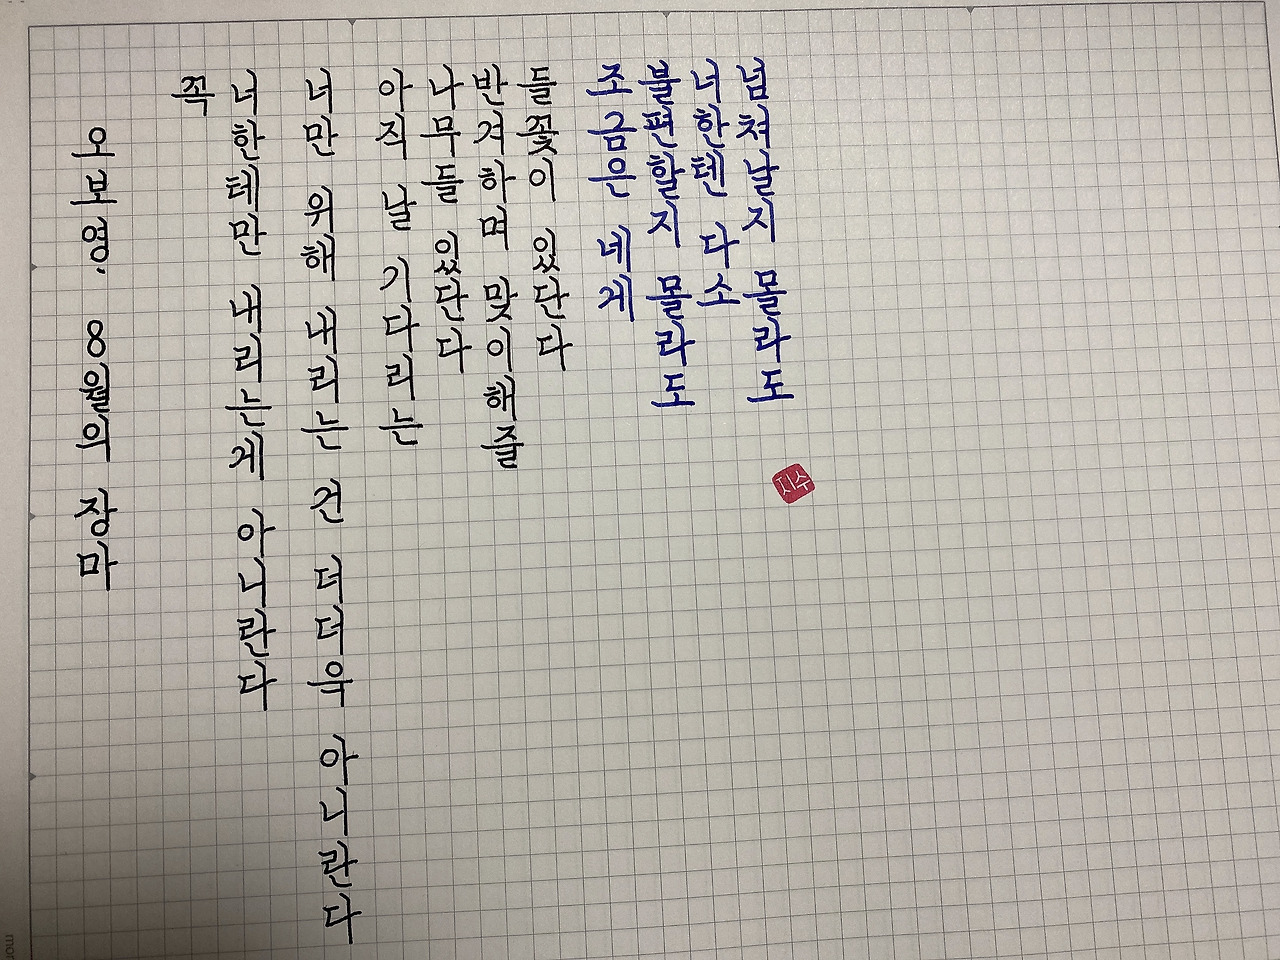 오보영. 8월의 장마
꼭
너한테만 내리는게 아니란다
너만 위해 내리는 건 더더욱 아니란다
아직 날 기다리는
나무들 있단다
반겨하며 맞이해줄
들꽃이 있단다
조금은 네게
불편할지 몰라도
너한텐 다소
넘쳐날지 몰라도
지수